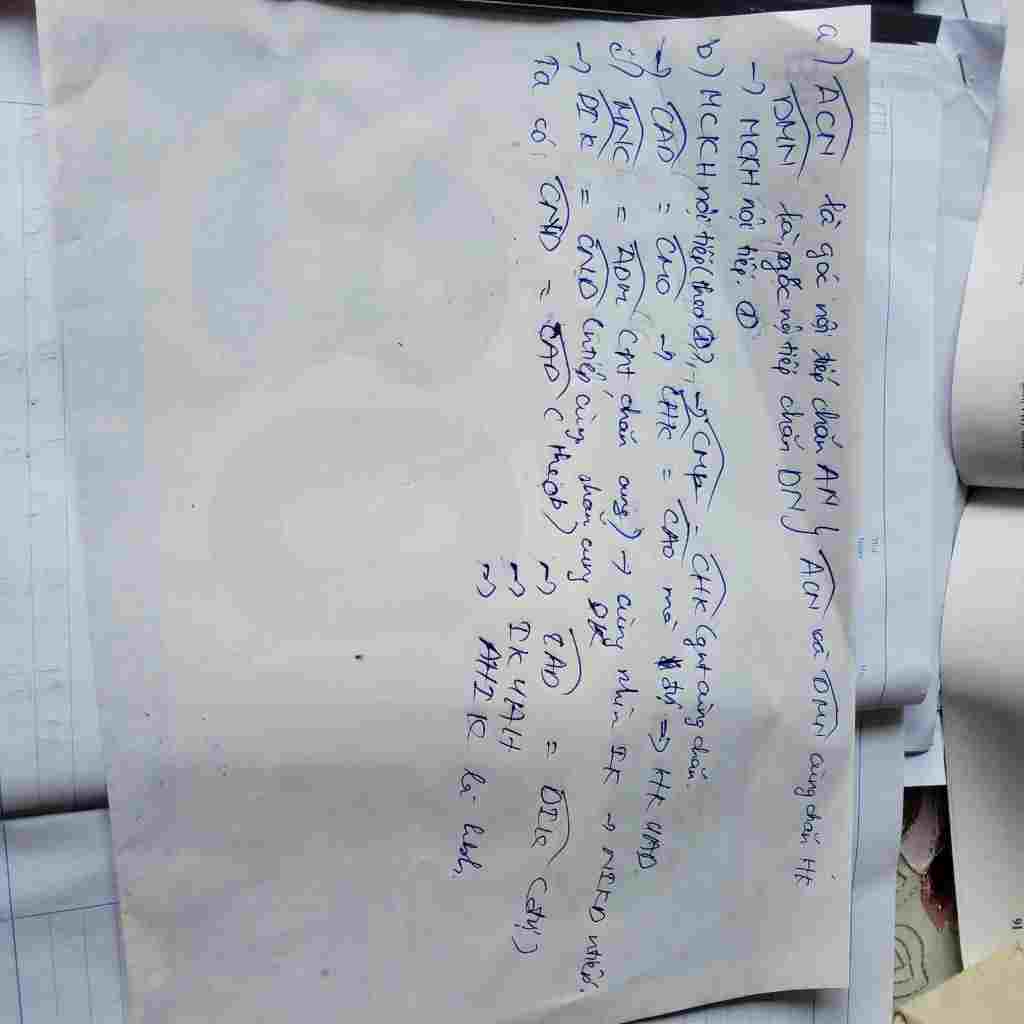 a) ACN là góc nội tiếp chắn AN } ACN và DMN cùng chắn HK
DMN là góc nội tiếp chắn DN
→ MCKH nội tiếp. ①
b) MCKH nội tiếp (theo ①) → CMK = CHK (gnt cùng chắn
→ CAD = CMD → CHK = CAD mà đvị => HK // AD
c) MNC = ADM (gnt chắn cung) → cùng nhìn IK → NIKD ntiếp.
→ DIK = CND (ntiếp cùng chắn cung DK
Ta có, CND = CAD (theo b) → CAD = DIK (đvị)
→ IK // AH
→ AHIK là hbh,